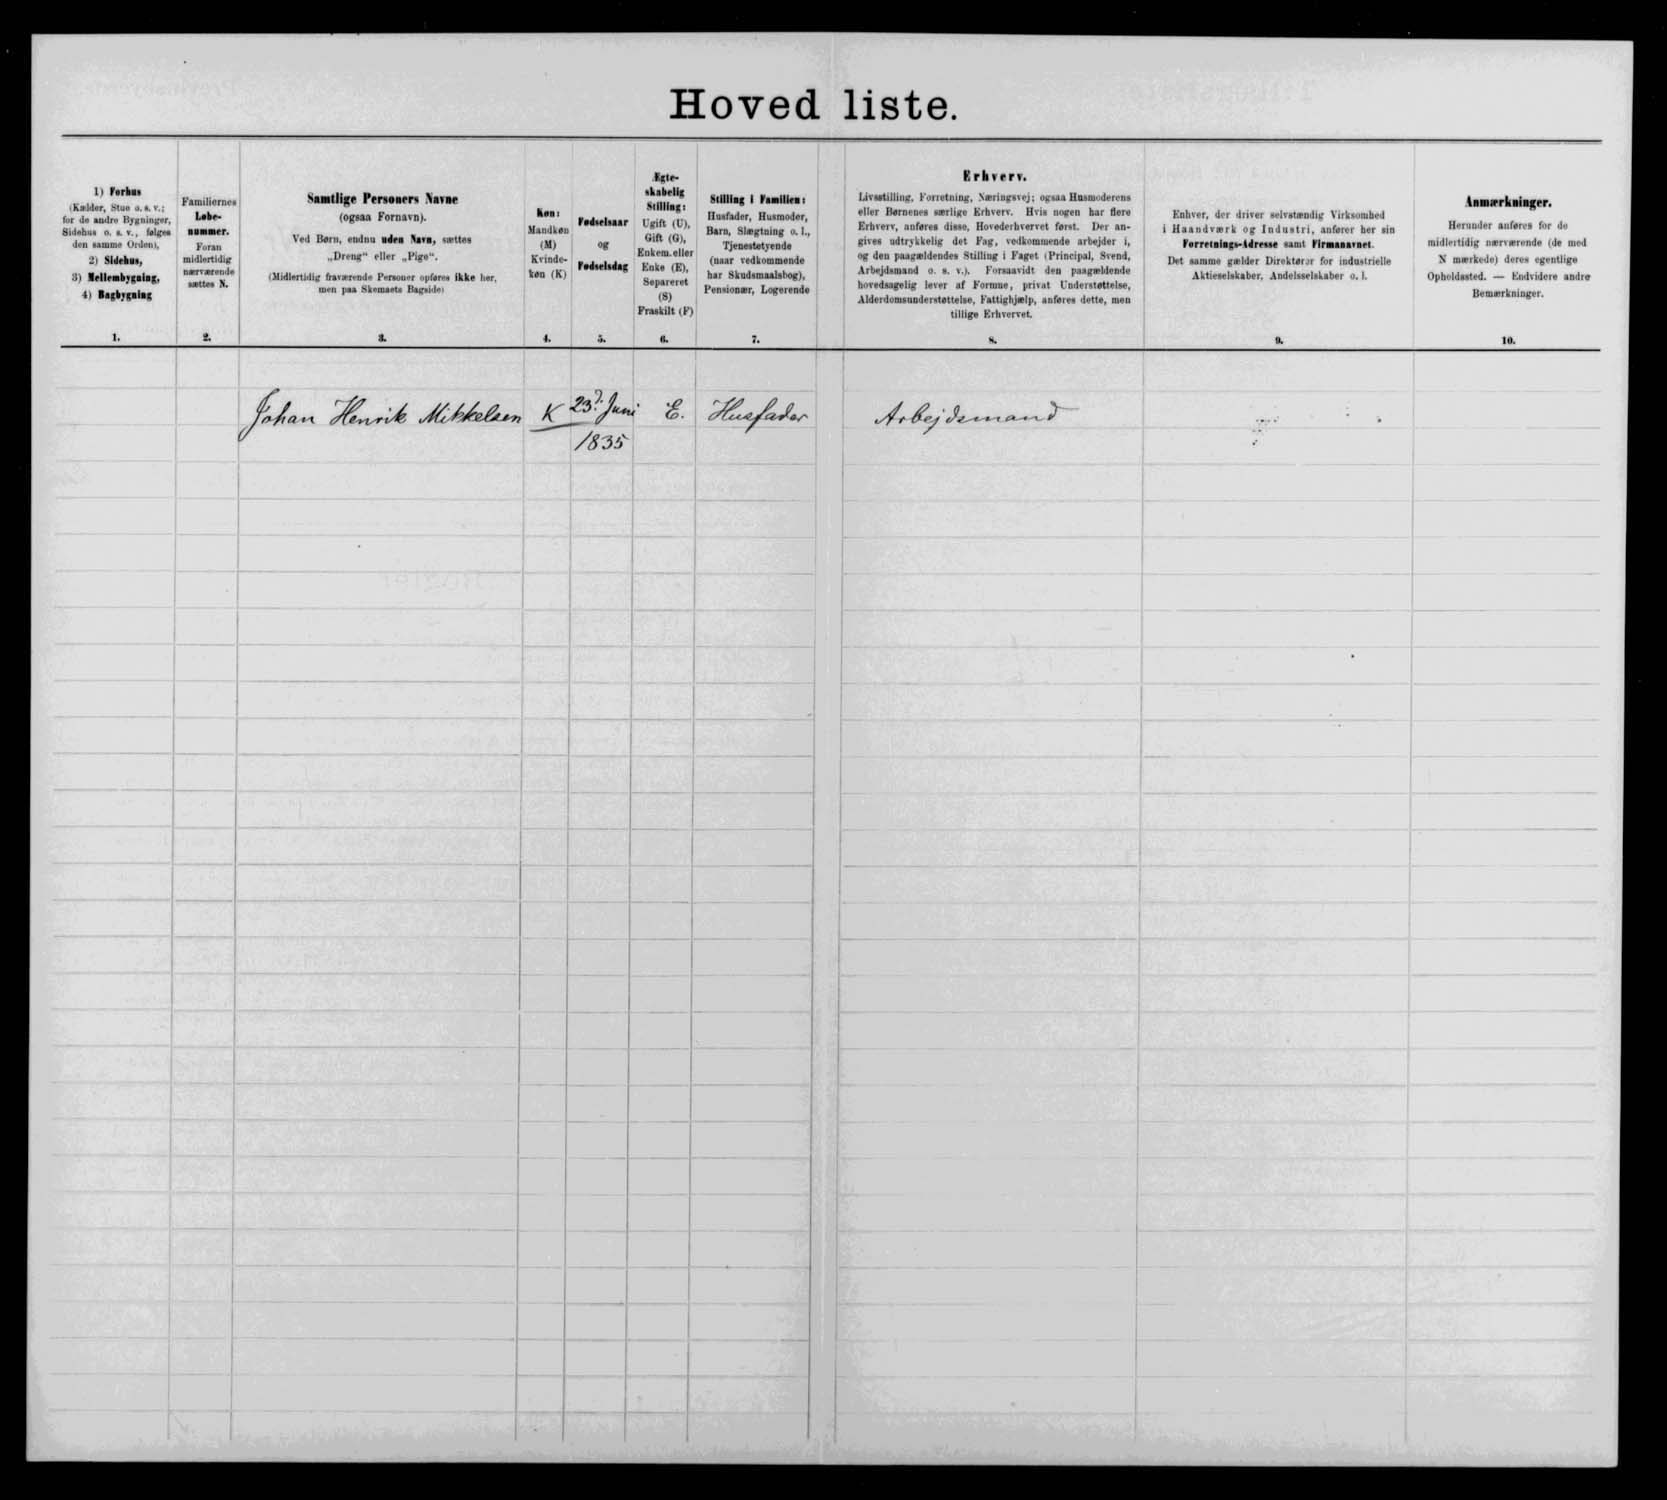 Hovedliste.
1) Forhus
(Kælder, Stue o. s. v.;
for de andre Bygninger,
Sidehus o. s. v., følges
den samme Orden),
2) Sidehus,
3) Mellembygning,
4) Bagbygning
1.
Familiernes
Løbe-
nummer.
Foran
midlertidig
nærværende
sættes N.
2.
Samtlige Personers Navne
(ogsaa Fornavn).
Ved Børn, endnu uden Navn, sættes
„Dreng" eller „Pige".
(Midlertidig fraværende Personer opføres ikke her,
men paa Skemaets Bagside)
3.
Køn:
Mandkøn
(M)
Kvinde-
køn (K)
4.
Fødselsaar
og
Fødselsdag
5.
Ægte-
skabelig
Stilling:
Ugift (U),
Gift (G),
Enkem. eller
Enke (E),
Separeret
(S)
Fraskilt (F)
6.
Stilling i Familien:
Husfader, Husmoder,
Barn, Slægtning o. l.,
Tjenestetyende
(naar vedkommende
har Skudsmaalsbog),
Pensionær, Logerende
7.
Erhverv.
Livsstilling, Forretning, Næringsvej; ogsaa Husmoderens
eller Børnenes særlige Erhverv. Hvis nogen har flere
Erhverv, anføres disse, Hovederhvervet først. Der an-
gives udtrykkelig det Fag, vedkommende arbejder i,
og den paagældendes Stilling i Faget (Principal, Svend,
Arbejdsmand o. s. v.). Forsaavidt den paagældende
hovedsagelig lever af Formue, privat Understøttelse,
Alderdomsunderstøttelse, Fattighjælp, anføres dette, men
tillige Erhvervet.
8.
Enhver, der driver selvstændig Virksomhed
i Haandværk og Industri, anfører her sin
Forretnings-Adresse samt Firmanavnet.
Det samme gælder Direktører for industrielle
Aktieselskaber, Andelsselskaber o. l.
9.
Anmærkninger.
Herunder anføres for de
midlertidig nærværende (de med
N mærkede) deres egentlige
Opholdssted. — Endvidere andre
Bemærkninger.
10.
Johan Henrik Mikkelsen K 23d. Juni E. Husfader Arbejdsmand
1835